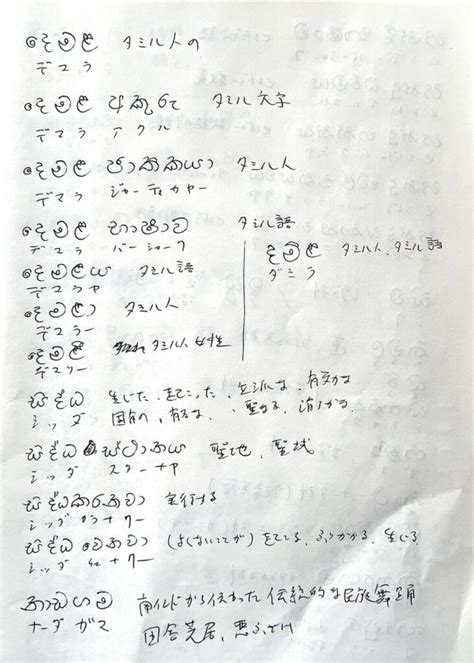 දෙමළ タミル人の
デマラ
දෙමළ අකුරු タミル文字
デマラ アクル
දෙමළ ජාතිකයා タミル人
デマラ ジャーティカヤー
දෙමළ භාෂාව タミル語
デマラ バーシャーワ
දෙමළය タミル語
デマラヤ
දෙමළා タミル人
デマラー
දෙමළී タミル人女性
デマリー
දමිළ タミル人、タミル語
ダミラ
සිද්ධ 生じた、起こった、立派な、有効な
シッダ 固有の、有名な、聖なる
සිද්ධස්ථානය 聖地、聖域
シッダ スターナヤ
සිද්ධ කරනවා 実行する
シッダ カラナワー
සිද්ධ වෙනවා (よくないことが)起こる、ふりかかる、生じる
シッダ ナワー
නාඩගම 南インドから伝わった伝統的な民族舞踊
ナーダガマ 田舎芝居、悪ふざけ